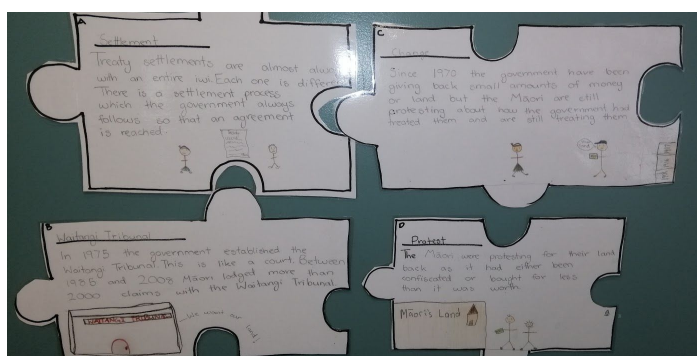 A
Settlement
Treaty settlements are almost always
with an entire iwi. Each one is different
There is a settlement process
which the government always
follows so that an agreement
is reached.
C
Change
Since 1970 the government have been
giving back small amounts of money
or land but the Māori are still
protesting about how the government had
treated them and are still treating them
B
Waitangi Tribunal
In 1975 the government established the
Waitangi Tribunal. This is like a court. Between
1985 and 2008 Māori lodged more than
2000 claims with the Waitangi Tribunal
WAITANGI TRIBUNAL
We want our land!
D
Protest
The Māori were protesting for their land
back as it had either been
confiscated or bought for less
than it was worth
Māori's Land